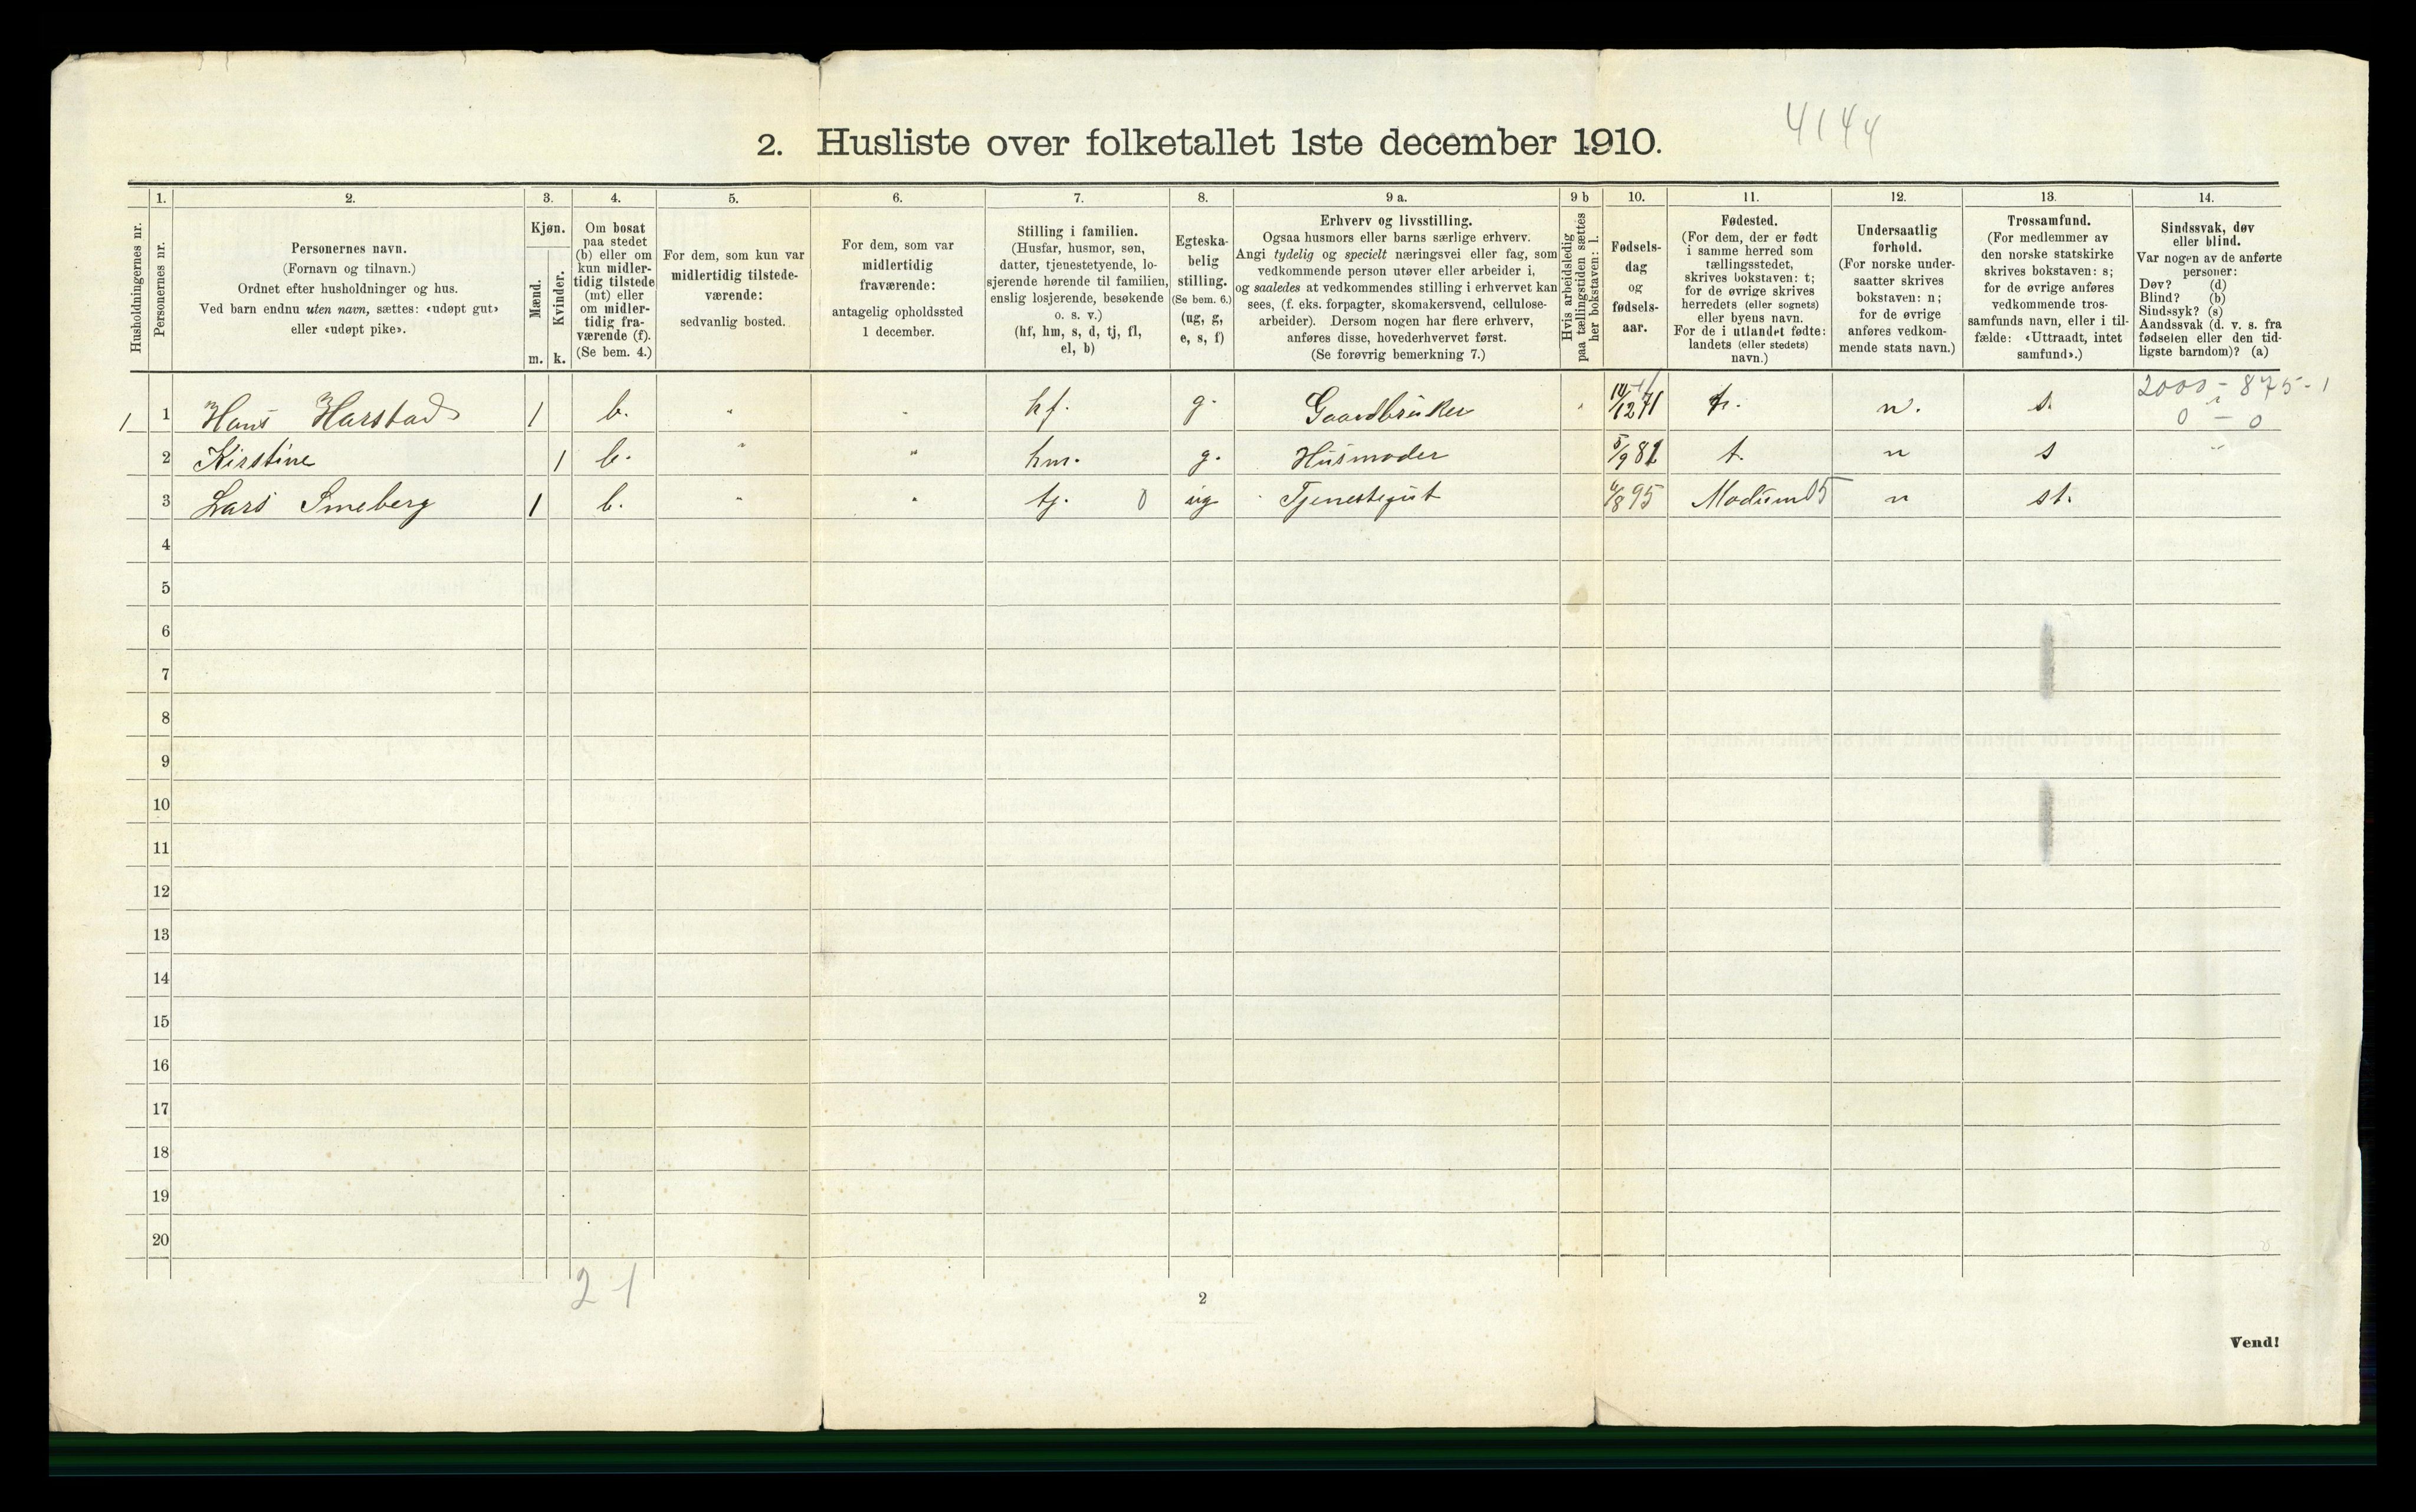 4144
2. Husliste over folketallet 1ste december 1910.
Husholdningernes nr.
1.
Personernes nr.
2.
Personernes navn.
(Fornavn og tilnavn.)
Ordnet efter husholdninger og hus.
Ved barn endnu uten navn, sættes: «udøpt gut»
eller «udøpt pike».
3.
Kjøn.
Mænd.
Kvinder.
m. k.
4.
Om bosat
paa stedet
(b) eller om
kun midler-
tidig tilstede
(mt) eller
om midler-
tidig fra-
værende (f).
(Se bem. 4.)
5.
For dem, som kun var
midlertidig tilstede-
værende:
sedvanlig bosted.
6.
For dem, som var
midlertidig
fraværende:
antagelig opholdssted
1 december.
7.
Stilling i familien.
(Husfar, husmor, søn,
datter, tjenestetyende, lo-
sjerende hørende til familien,
enslig losjerende, besøkende
o. s. v.)
(hf, hm, s, d, tj, fl,
el, b)
8.
Egteska-
belig
stilling.
(Se bem. 6.)
(ug, g,
e, s, f)
9 a.
Erhverv og livsstilling.
Ogsaa husmors eller barns særlige erhverv.
Angi tydelig og specielt næringsvei eller fag, som
vedkommende person utøver eller arbeider i,
og saaledes at vedkommendes stilling i erhvervet kan
sees, (f. eks. forpagter, skomakersvend, cellulose-
arbeider). Dersom nogen har flere erhverv,
anføres disse, hovederhvervet først.
(Se forøvrig bemerkning 7.)
9 b
Hvis arbeidsledig
paa tællingstiden sættes
her bokstaven: l.
10.
Fødsels-
dag
og
fødsels-
aar.
11.
Fødested.
(For dem, der er født
i samme herred som
tællingsstedet,
skrives bokstaven: t;
for de øvrige skrives
herredets (eller sognets)
eller byens navn.
For de i utlandet fødte:
landets (eller stedets)
navn.)
12.
Undersaatlig
forhold.
(For norske under-
saatter skrives
bokstaven: n;
for de øvrige
anføres vedkom-
mende stats navn.)
13.
Trossamfund.
(For medlemmer av
den norske statskirke
skrives bokstaven: s;
for de øvrige anføres
vedkommende tros-
samfunds navn, eller i til-
fælde: «Uttraadt, intet
samfund».)
14.
Sindssvak, døv
eller blind.
Var nogen av de anførte
personer:
Døv? (d)
Blind? (b)
Sindssyk? (s)
Aandssvak (d. v. s. fra
fødselen eller den tid-
ligste barndom)? (a)
2000 - 875 - 1
1 1 Hans Harstad 1 b. " " hf. g. Gaardbruker " 71 n. s. 0 - 0
2 Kirstine 1 b. " " hm. g. Husmoder 5/9 81 t. n s "
3 Lars Smeberg 1 b. " " tj. 0 ug Tjenestegut 95 Modum 05 n st.
4
5
6
7
8
9
10
11
12
13
14
15
16
17
18
19
20
2 1
2
Vend!